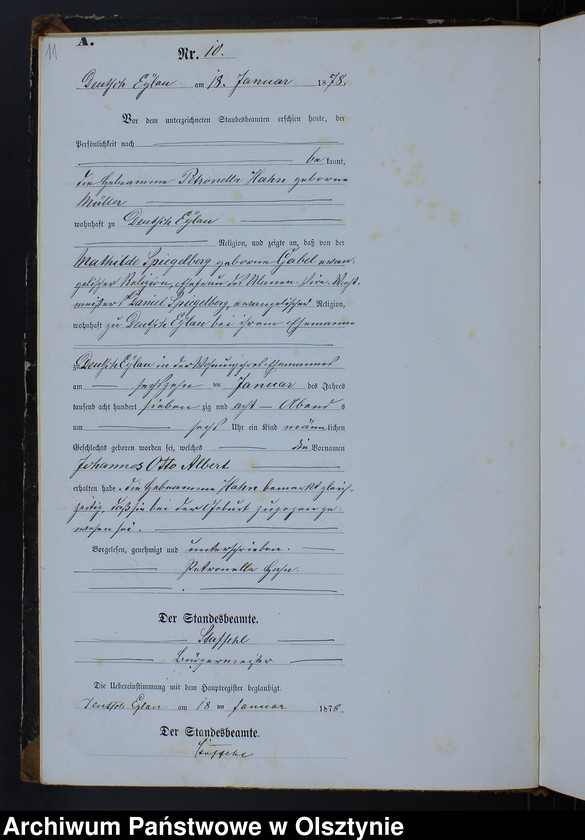 11
A.
Nr. 10.
Deutsch Eylau am 18. Januar 1878.
Vor dem unterzeichneten Standesbeamten erschien heute, der
Persönlichkeit nach
bekannt,
die Hebeamme Petronella Hahn geborene
Müller
wohnhaft zu Deutsch Eylau
Religion, und zeigte an, daß von der
Mathilde Spiegelberg geborne Gabel evan-
gelischer Religion, Ehefrau des Ulanen
meisters Daniel Spiegelberg, evangelischer Religion,
wohnhaft zu Deutsch Eylau bei ihrem Ehemanne
zu Deutsch Eylau in der Wohnung ihres Ehemannes
am sechszehn ten Januar des Jahres
tausend acht hundert sieben zig und acht Abends
um sechs Uhr ein Kind männlichen
Geschlechts geboren worden sei, welches die Vornamen
Johannes Otto Albert
erhalten habe. die Hebeamme Hahn bemerkt gleich-
zeitig, daß sie bei der Geburt zugegen ge-
wesen sei.
Vorgelesen, genehmigt und unterschrieben.
Petronella Hahn.
Der Standesbeamte.
Bürgermeister
Die Uebereinstimmung mit dem Hauptregister beglaubigt.
Deutsch Eylau am 18 ten Januar 1878.
Der Standesbeamte.
Archiwum Państwowe w Olsztynie